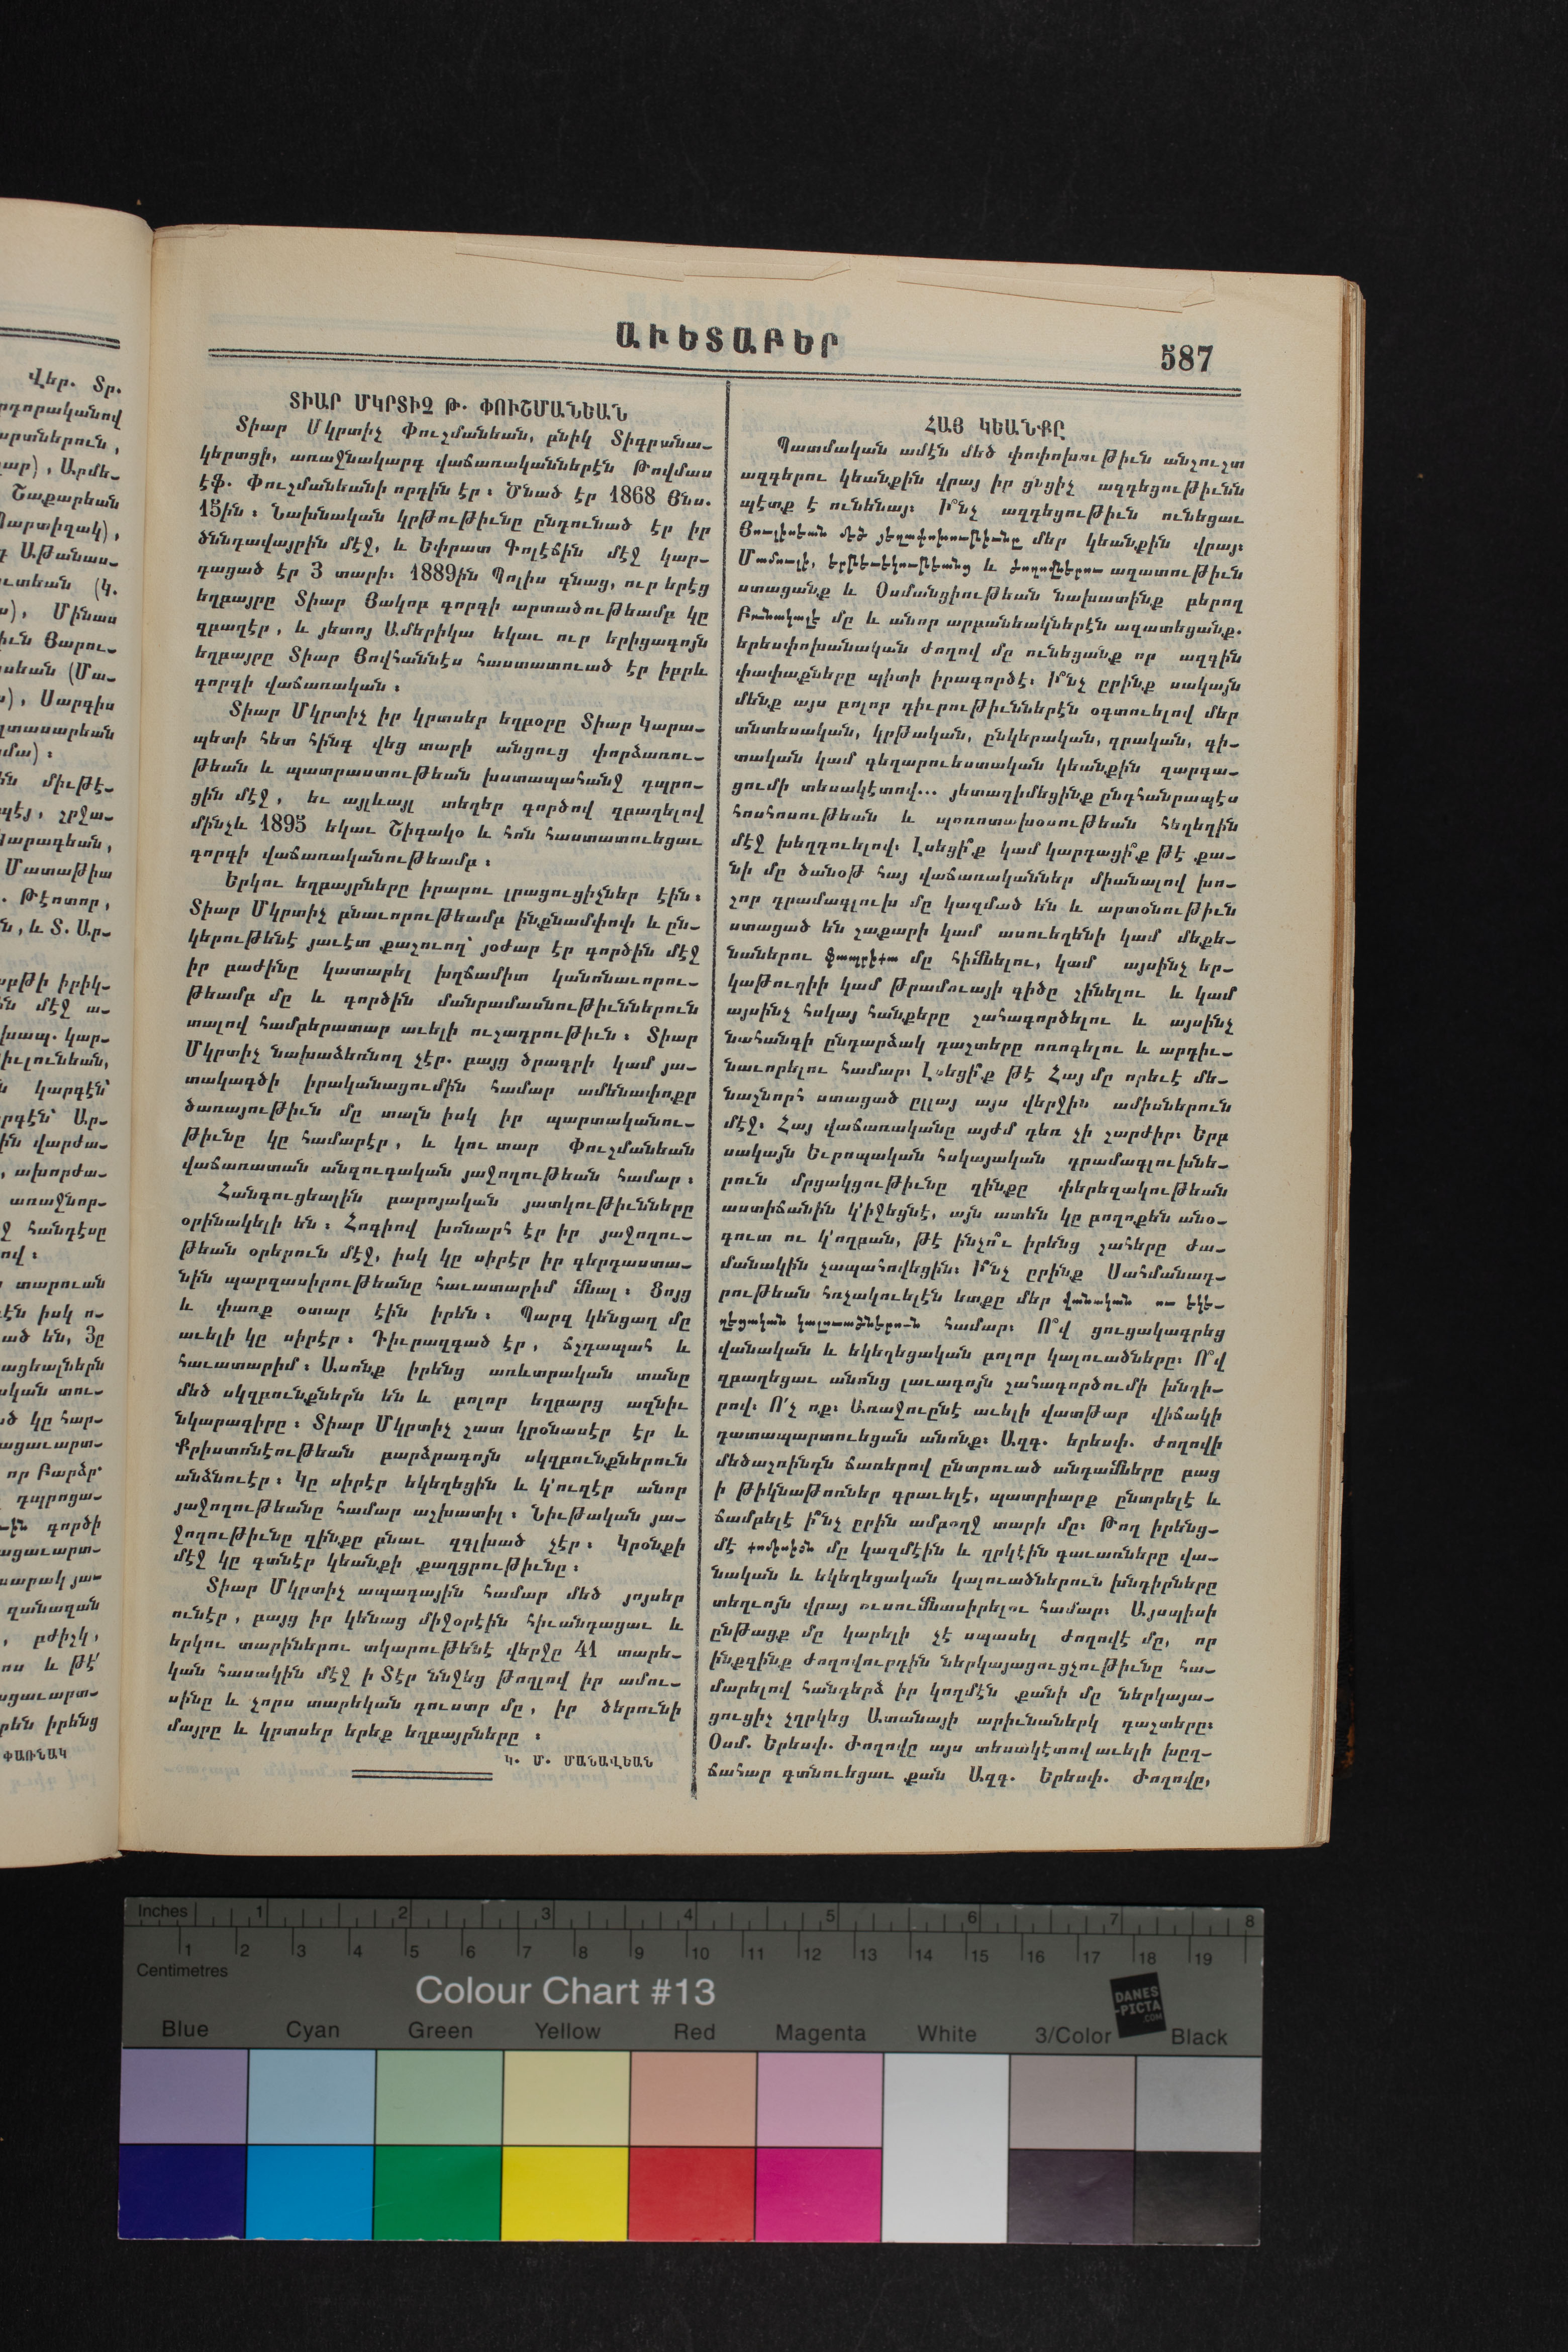 ԱՒԵՏԱԲԵՐ
587
ՏԻԱՐ ՄԿՐՏԻՉ Թ. ՓՈՒՇՄԱՆԵԱՆ
Տիար Մկրտիչ Փուշմանեան, բնիկ Տիգրանա-
կերտցի, առաջնակարգ վաճառականներէն Թովմաս
էֆ. Փուշմանեանի որդին էր։ Ծնած էր 1868 Յնս.
15ին։ Նախնական կրթութիւնը ընդունած էր իր
ծննդավայրին մէջ, և Եփրատ Գոլէճին մէջ կար-
դացած էր 3 տարի։ 1889ին Պոլիս գնաց, ուր երէց
եղբայրը Տիար Յակոբ գորգի արտածութեամբ կը
զբաղէր, և յետոյ Ամերիկա եկաւ ուր երիցագոյն
եղբայրը Տիար Յովհաննէս հաստատուած էր իբրև
գորգի վաճառական։
Տիար Մկրտիչ իր կրտսեր եղբօրը Տիար Կարա-
պետի հետ հինգ վեց տարի անցուց փորձառու-
թեան և պատրաստութեան խստապահանջ դպրո-
ցին մէջ, եւ այլևայլ տեղեր գործով զբաղելով
մինչև 1895 եկաւ Շիգակօ և հոն հաստատուեցաւ
գորգի վաճառականութեամբ։
Երկու եղբայրները իրարու լրացուցիչներ էին։
Տիար Մկրտիչ բնաւորութեամբ ինքնամփոփ և ըն-
կերութենէ յաւէտ քաշուող՝ յօժար էր գործին մէջ
իր բաժինը կատարել խղճամիտ կանոնաւորու-
թեամբ մը և գործին մանրամասնութիւններուն
տալով համբերատար աւելի ուշադրութիւն։ Տիար
Մկրտիչ նախաձեռնող չէր. բայց ծրագրի կամ յա-
տակագծի իրականացումին համար ամենափոքր
ծառայութիւն մը տալն իսկ իր պարտականու-
թիւնը կը համարէր, և կու տար Փուշմանեան
վաճառատան անզուգական յաջողութեան համար։
Հանգուցեալին բարոյական յատկութիւնները
օրինակելի են։ Հոգիով խոնարհ էր իր յաջողու-
թեան օրերուն մէջ, իսկ կը սիրէր իր գերդաստա-
նին պարզասիրութեանը հաւատարիմ մնալ։ Ցոյց
և փառք օտար էին իրեն։ Պարզ կենցաղ մը
աւելի կը սիրէր։ Դիւրազգած էր, ճշդապահ և
հաւատարիմ։ Ասոնք իրենց առևտրական տանը
մեծ սկզբունքներն են և բոլոր եղբարց ազնիւ
նկարագիրը։ Տիար Մկրտիչ շատ կրօնասէր էր և
Քրիստոնէութեան բարձրագոյն սկզբունքներուն
անձնուէր։ Կը սիրէր եկեղեցին և կ՚ուզէր անոր
յաջողութեանը համար աշխատիլ։ Նիւթական յա-
ջողութիւնը զինքը բնաւ զգլխած չէր։ Կրօնքի
մէջ կը գտնէր կեանքի քաղցրութիւնը։
Տիար Մկրտիչ ապագային համար մեծ յոյսեր
ունէր, բայց իր կենաց միջօրէին հիւանդացաւ և
երկու տարիներու տկարութենէ վերջը 41 տարե-
կան հասակին մէջ ի Տէր ննջեց թողլով իր ամու-
սինը և չորս տարեկան դուստր մը, իր ծերունի
մայրը և կրտսեր երեք եղբայրները։
Կ. Մ. ՄԱՆԱՎԵԱՆ
ՀԱՅ ԿԵԱՆՔԸ
Պատմական ամէն մեծ փոփոխութիւն անշուշտ
ազգերու կեանքին վրայ իր ցնցիչ ազդեցութիւնն
պէտք է ունենայ։ Ի՞նչ ազդեցութիւն ունեցաւ
Յուլիսեան մեծ յեղափոխութիւնը մեր կեանքին վրայ։
Մամուլի, երթեւեկութեանց և ժողովներու ազատութիւն
ստացանք և Օսմանցիութեան նախատինք բերող
Բռնակալէ մը և անոր արբանեակներէն ազատեցանք.
երեսփոխանական ժողով մը ունեցանք որ ազգին
փափաքները պիտի իրագործէ։ Ի՞նչ ըրինք սակայն
մենք այս բոլոր դիւրութիւններէն օգտուելով մեր
տնտեսական, կրթական, ընկերական, գրական, գի-
տական կամ գեղարուեստական կեանքին զարգա-
ցումի տեսակէտով... յետադիմեցինք ընդհանրապէս
հոսհոսութեան և պոռոտախօսութեան հեղեղին
մէջ խեղդուելով։ Լսեցի՞ք կամ կարդացի՞ք թէ քա-
նի մը ծանօթ հայ վաճառականներ միանալով խո-
շոր դրամագլուխ մը կազմած են և արտօնութիւն
ստացած են շաքարի կամ ասուեղէնի կամ մեքե-
նաներու ֆապրիքա մը հիմնելու, կամ այսինչ եր-
կաթուղիի կամ թրամուայի գիծը շինելու և կամ
այսինչ հսկայ հանքերը շահագործելու և այսինչ
նահանգի ընդարձակ դաշտերը ոռոգելու և արդիւ-
նաւորելու համար։ Լսեցի՞ք թէ Հայ մը որեւէ մե-
նաշնորհ ստացած ըլլայ այս վերջին ամիսներուն
մէջ։ Հայ վաճառականը այժմ դեռ չի շարժիր։ Երբ
սակայն Եւրոպական հսկայական դրամագլուխնե-
րուն մրցակցութիւնը զինքը փերեզակութեան
աստիճանին կ՚իջեցնէ, այն ատեն կը բողոքեն անօ-
գուտ ու կ՚ողբան, թէ ինչո՞ւ իրենց շահերը ժա-
մանակին չապահովեցին։ Ի՞նչ ըրինք Սահմանադ-
րութեան հռչակուելէն ետքը մեր վանական ու եկե-
ղեցական կալուածներուն համար։ Ո՞վ ցուցակագրեց
վանական և եկեղեցական բոլոր կալուածները։ Ո՞վ
զբաղեցաւ անոնց լաւագոյն շահագործումի խնդի-
րով։ Ո՛չ ոք։ Առաջուընէ աւելի վատթար վիճակի
դատապարտուեցան անոնք։ Ազգ. երեսփ. ժողովի
մեծաշռինդն ճառերով ընտրուած անդամները բաց
ի թիկնաթոռներ գրաւելէ, պատրիարք ընտրելէ և
ճամբելէ ի՞նչ ըրին ամբողջ տարի մը։ Թող իրենց-
մէ քոմիսիօն մը կազմէին և ղրկէին գաւառները վա-
նական և եկեղեցական կալուածներուն խնդիրները
տեղւոյն վրայ ուսումնասիրելու համար։ Այսպիսի
ընթացք մը կարելի չէ սպասել ժողովէ մը, որ
ինքզինք ժողովուրդին ներկայացուցչութիւնը հա-
մարելով հանդերձ իր կողմէն քանի մը ներկայա-
ցուցիչ չղրկեց Ատանայի արիւնաներկ դաշտերը։
Օսմ. Երեսփ. Ժողովը այս տեսակէտով աւելի խըղ-
ճահար գտնուեցաւ քան Ազգ. Երեսփ. Ժողովը,
Վեր. Տր.
Շաքարեան
Մինաս
Սարգիս
Մատաթիա
Թէոտոր,
ՓԱՌՆԱԿ
Inches 1 2 3 4 5 6 7 8
1 2 3 4 5 6 7 8 9 10 11 12 13 14 15 16 17 18 19
Centimetres
Colour Chart #13
DANES
-PICTA
.COM
Blue Cyan Green Yellow Red Magenta White 3/Color Black